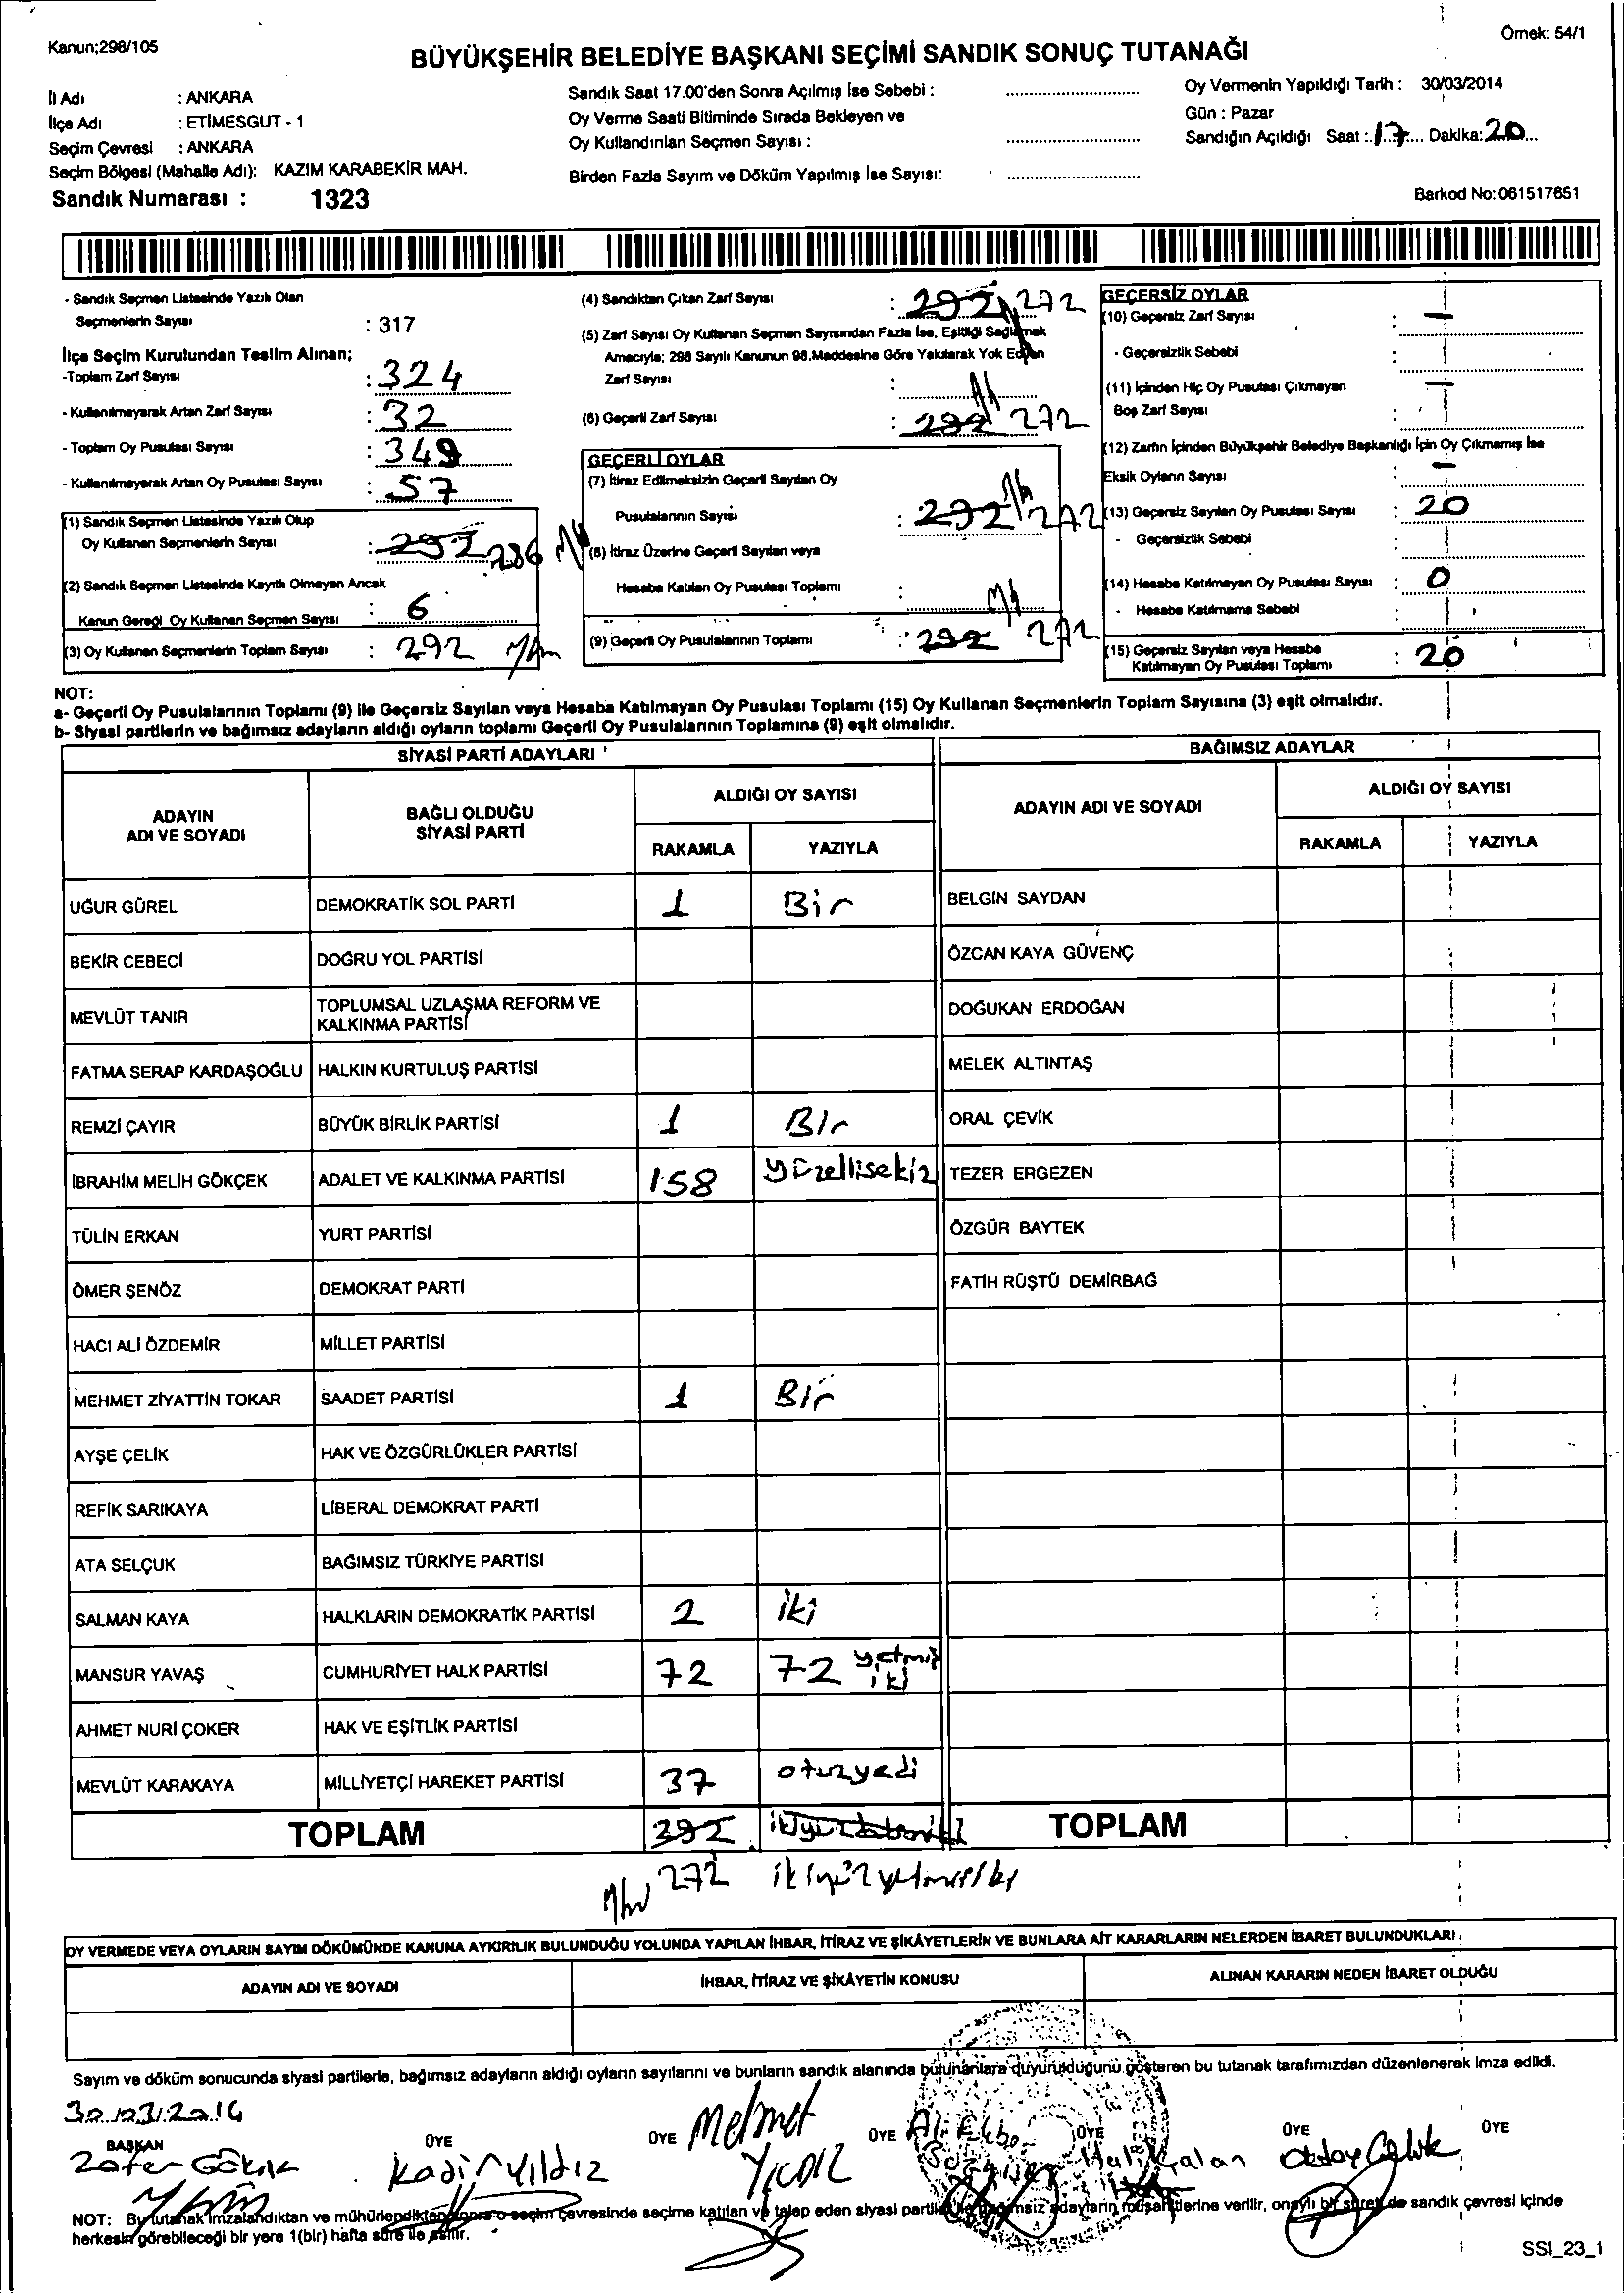 Kanun;298/105
Örnek: 54/1
BÜYÜKŞEHİR BELEDİYE BAŞKANI SEÇİMİ SANDIK SONUÇ TUTANAĞI
İl Adı : ANKARA
İlçe Adı : ETİMESGUT - 1
Seçim Çevresi : ANKARA
Seçim Bölgesi (Mahalle Adı): KAZIM KARABEKİR MAH.
Sandık Numarası : 1323
Sandık Saat 17.00'den Sonra Açılmış İse Sebebi :
Oy Verme Saati Bitiminde Sırada Bekleyen ve
Oy Kullandırılan Seçmen Sayısı :
Birden Fazla Sayım ve Döküm Yapılmış İse Sayısı:
Oy Vermenin Yapıldığı Tarih : 30/03/2014
Gün : Pazar
Sandığın Açıldığı Saat : 17 Dakika: 20
Barkod No: 061517651
- Sandık Seçmen Listesinde Yazılı Olan
Seçmenlerin Sayısı : 317
İlçe Seçim Kurulundan Teslim Alınan;
-Toplam Zarf Sayısı : 324
- Kullanılmayarak Artan Zarf Sayısı : 32
- Toplam Oy Pusulası Sayısı : 349
- Kullanılmayarak Artan Oy Pusulası Sayısı : 57
(1) Sandık Seçmen Listesinde Yazılı Olup
Oy Kullanan Seçmenlerin Sayısı : 292 286
(2) Sandık Seçmen Listesinde Kayıtlı Olmayan Ancak
Kanun Gereği Oy Kullanan Seçmen Sayısı : 6
(3) Oy Kullanan Seçmenlerin Toplam Sayısı : 292
(4) Sandıktan Çıkan Zarf Sayısı : 292 272
(5) Zarf Sayısı Oy Kullanan Seçmen Sayısından Fazla İse, Eşitliği Sağlamak
Amacıyla; 298 Sayılı Kanunun 98.Maddesine Göre Yakılarak Yok Edilen
Zarf Sayısı :
(6) Geçerli Zarf Sayısı : 292 272
GEÇERLİ OYLAR
(7) İtiraz Edilmeksizin Geçerli Sayılan Oy
Pusulalarının Sayısı : 292 272
(8) İtiraz Üzerine Geçerli Sayılan veya
Hesaba Katılan Oy Pusulası Toplamı :
(9) Geçerli Oy Pusulalarının Toplamı : 292 272
GEÇERSİZ OYLAR
(10) Geçersiz Zarf Sayısı : -
- Geçersizlik Sebebi :
(11) İçinden Hiç Oy Pusulası Çıkmayan
Boş Zarf Sayısı : -
(12) Zarfın İçinden Büyükşehir Belediye Başkanlığı İçin Oy Çıkmamış İse
Eksik Oyların Sayısı : -
(13) Geçersiz Sayılan Oy Pusulası Sayısı : 20
- Geçersizlik Sebebi :
(14) Hesaba Katılmayan Oy Pusulası Sayısı : 0
- Hesaba Katılmama Sebebi :
(15) Geçersiz Sayılan veya Hesaba
Katılmayan Oy Pusulası Toplamı : 20
NOT:
a- Geçerli Oy Pusulalarının Toplamı (9) ile Geçersiz Sayılan veya Hesaba Katılmayan Oy Pusulası Toplamı (15) Oy Kullanan Seçmenlerin Toplam Sayısına (3) eşit olmalıdır.
b- Siyasi partilerin ve bağımsız adayların aldığı oyların toplamı Geçerli Oy Pusulalarının Toplamına (9) eşit olmalıdır.
SİYASİ PARTİ ADAYLARI
BAĞIMSIZ ADAYLAR
ADAYIN ADI VE SOYADI
BAĞLI OLDUĞU SİYASİ PARTİ
ALDIĞI OY SAYISI
RAKAMLA YAZIYLA
ADAYIN ADI VE SOYADI
ALDIĞI OY SAYISI
RAKAMLA YAZIYLA
UĞUR GÜREL DEMOKRATİK SOL PARTİ 1 Bir BELGİN SAYDAN
BEKİR CEBECİ DOĞRU YOL PARTİSİ ÖZCAN KAYA GÜVENÇ
MEVLÜT TANIR TOPLUMSAL UZLAŞMA REFORM VE KALKINMA PARTİSİ DOĞUKAN ERDOĞAN
FATMA SERAP KARDAŞOĞLU HALKIN KURTULUŞ PARTİSİ MELEK ALTINTAŞ
REMZİ ÇAYIR BÜYÜK BİRLİK PARTİSİ 1 Bir ORAL ÇEVİK
İBRAHİM MELİH GÖKÇEK ADALET VE KALKINMA PARTİSİ 158 yüzellisekiz TEZER ERGEZEN
TÜLİN ERKAN YURT PARTİSİ ÖZGÜR BAYTEK
ÖMER ŞENÖZ DEMOKRAT PARTİ FATİH RÜŞTÜ DEMİRBAĞ
HACI ALİ ÖZDEMİR MİLLET PARTİSİ
MEHMET ZİYATTİN TOKAR SAADET PARTİSİ 1 Bir
AYŞE ÇELİK HAK VE ÖZGÜRLÜKLER PARTİSİ
REFİK SARIKAYA LİBERAL DEMOKRAT PARTİ
ATA SELÇUK BAĞIMSIZ TÜRKİYE PARTİSİ
SALMAN KAYA HALKLARIN DEMOKRATİK PARTİSİ 2 iki
MANSUR YAVAŞ CUMHURİYET HALK PARTİSİ 72 72 yetmiş iki
AHMET NURİ ÇOKER HAK VE EŞİTLİK PARTİSİ
MEVLÜT KARAKAYA MİLLİYETÇİ HAREKET PARTİSİ 37 otuzyedi
TOPLAM 392 TOPLAM
272 ikiyüzyetmişiki
OY VERMEDE VEYA OYLARIN SAYIM DÖKÜMÜNDE KANUNA AYKIRILIK BULUNDUĞU YOLUNDA YAPILAN İHBAR, İTİRAZ VE ŞİKÂYETLERİN VE BUNLARA AİT KARARLARIN NELERDEN İBARET BULUNDUKLARI
ADAYIN ADI VE SOYADI
İHBAR, İTİRAZ VE ŞİKÂYETİN KONUSU
ALINAN KARARIN NEDEN İBARET OLDUĞU
Sayım ve döküm sonucunda siyasi partilerle, bağımsız adayların aldığı oyların sayılarını ve bunların sandık alanında bulunanlara duyurulduğunu gösteren bu tutanak tarafımızdan düzenlenerek imza edildi.
30/03/2014
BAŞKAN ÜYE ÜYE ÜYE ÜYE ÜYE ÜYE
Zafer Kadir Yıldız Mehmet YILDIZ Halil Kalan Oktay Çelik
NOT: Bu tutanak imzalandıktan ve mühürlendikten sonra o seçim çevresinde seçime katılan ve talep eden siyasi partiler ile bağımsız adayların müşahitlerine verilir, onaylı bir sureti de sandık çevresi içinde
herkesin görebileceği bir yere 1(bir) hafta süre ile asılır.
SSI_23_1